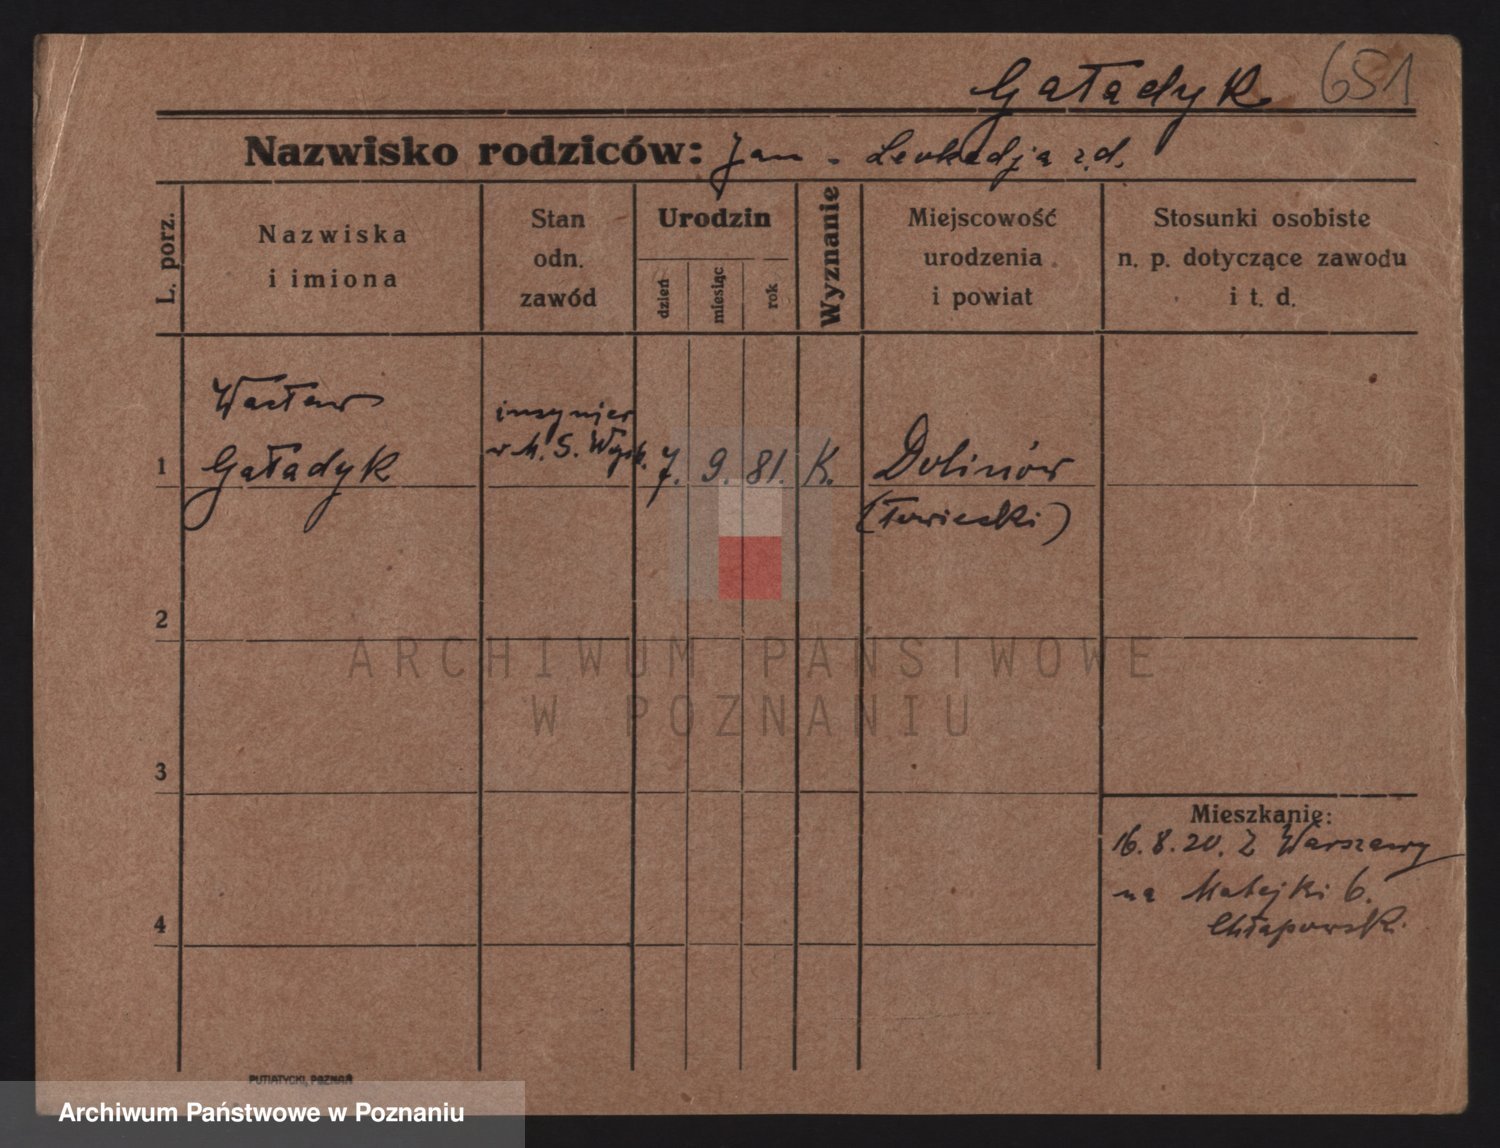 Gaładyk 651
Nazwisko rodziców: Jan - Leokadja z.d.
L. porz.
Nazwiska
i imiona
Stan
odn.
zawód
Urodzin
dzień
miesiąc
rok
Wyznanie
Miejscowość
urodzenia
i powiat
Stosunki osobiste
n. p. dotyczące zawodu
i t. d.
Wacław
Gaładyk
inżynier
w M. S. Wojsk.
1
7. 9. 81. K.
Dolinów
(Łowicski)
2
3
4
Mieszkanie:
16.8.20. Z Warszawy
na Matejki 6.
Chłapowsk.
ARCHIWUM PAŃSTWOWE
W POZNANIU
PUTIATYCKI, POZNAŃ
Archiwum Państwowe w Poznaniu